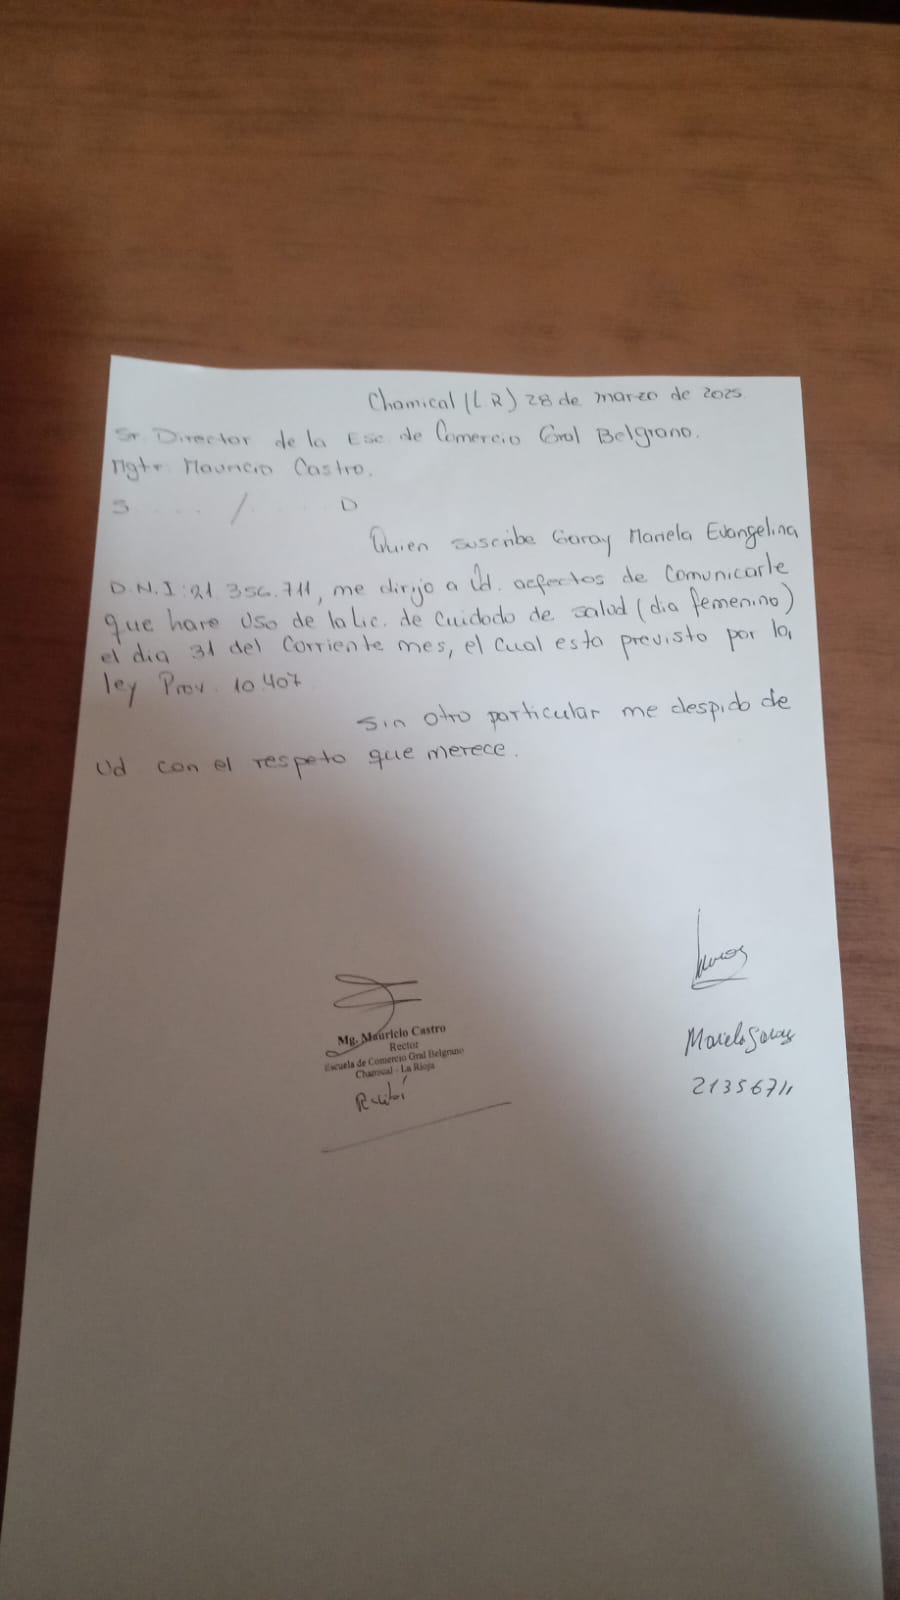 Chamical (L.R) 28 de marzo de 2025.
Sr. Director de la Esc. de Comercio Gral Belgrano.
Mgtr. Mauricio Castro.
S ..... / ..... D
Quien suscribe Garay Mariela Evangelina
D.N.I: 21.356.711, me dirijo a Ud. aefectos de Comunicarle
que hare uso de la Lic. de Cuidado de salud (dia femenino)
el dia 31 del Corriente mes, el cual esta previsto por la
ley Prov. 10.407
Sin otro particular me despido de
Ud con el respeto que merece.
Mg. Mauricio Castro
Rector
Escuela de Comercio Gral Belgrano
Chamical - La Rioja
Recibí
Mariela Garay
21356711